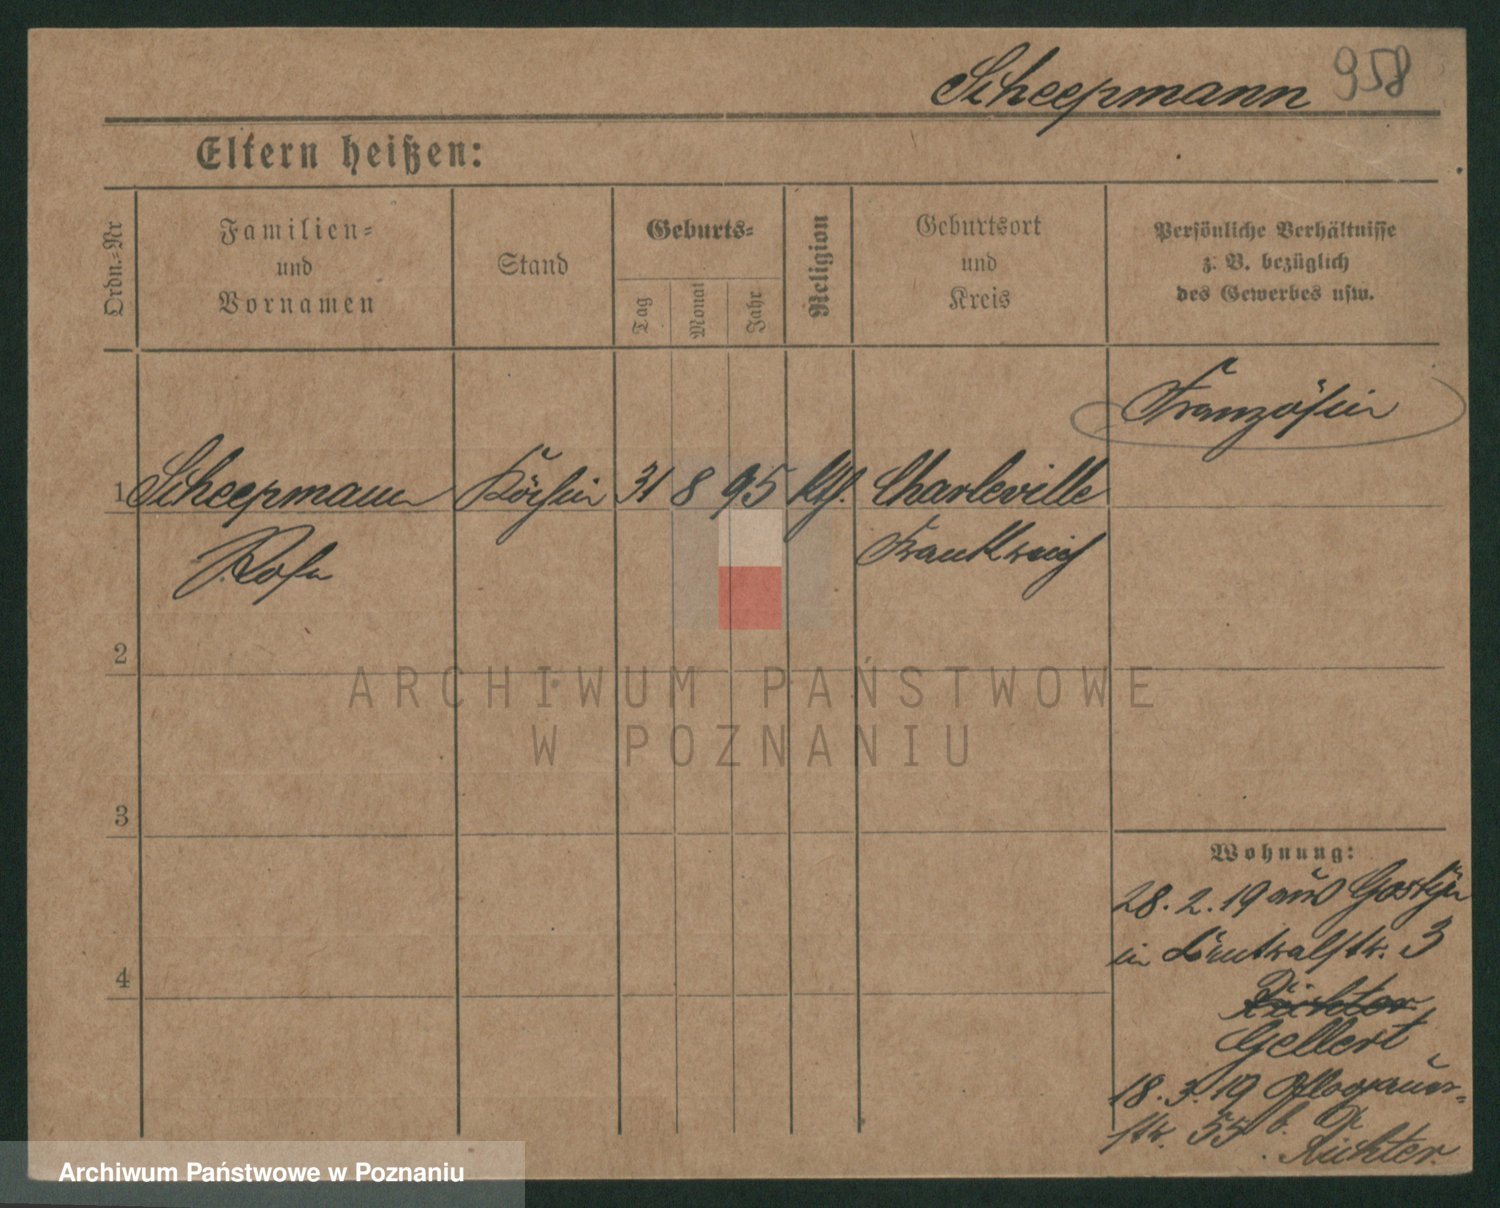 Scheepmann 958
Eltern heißen:
Ordn.-Nr
Familien-
und
Vornamen
Stand
Geburts-
Tag
Monat
Jahr
Religion
Geburtsort
und
Kreis
Persönliche Verhältnisse
z. B. bezüglich
des Gewerbes usw.
Französin
1 Scheepmann Köchin 31 8 95 kth. Charleville
Rosa Frankreich
2
3
4
Wohnung:
28. 2. 19 aus Gostyn
in 3
Dr.
Richter
Gellert
18. 3. 19 Glogauer-
str. 55 b. Dr.
Richter.
ARCHIWUM PAŃSTWOWE
W POZNANIU
Archiwum Państwowe w Poznaniu